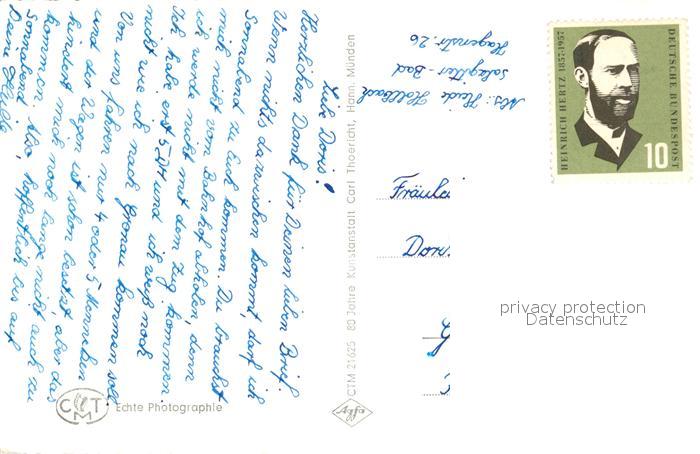 Liebe Doris!
Herzlichen Dank für Deinen lieben Brief.
Wenn nichts dazwischen kommt, darf ich
Sonnabend zu Euch kommen. Du brauchst
mich nicht vom Bahnhof abholen, denn
ich werde nicht mit dem Zug kommen
ich habe erst 5 DM und ich weiß noch
nicht wie ich nach Gronau kommen soll
Von uns fahren nur 4 oder 5 Menschen
und der Wagen ist schon besetzt, aber das
hindert mich noch lange nicht auch zu
kommen. Also, hoffentlich bis auf
Sonnabend
Deine Heide
Abs.: Heide Hollbach
Salzgitter-Bad
Hagenstr. 26
Fräule
Dor
CTM 21625 80 Jahre Kunstanstalt Carl Thoericht, Hann. Münden
Agfa
CTM
Echte Photographie
HEINRICH HERTZ 1857-1957
DEUTSCHE BUNDESPOST
10
privacy protection
Datenschutz